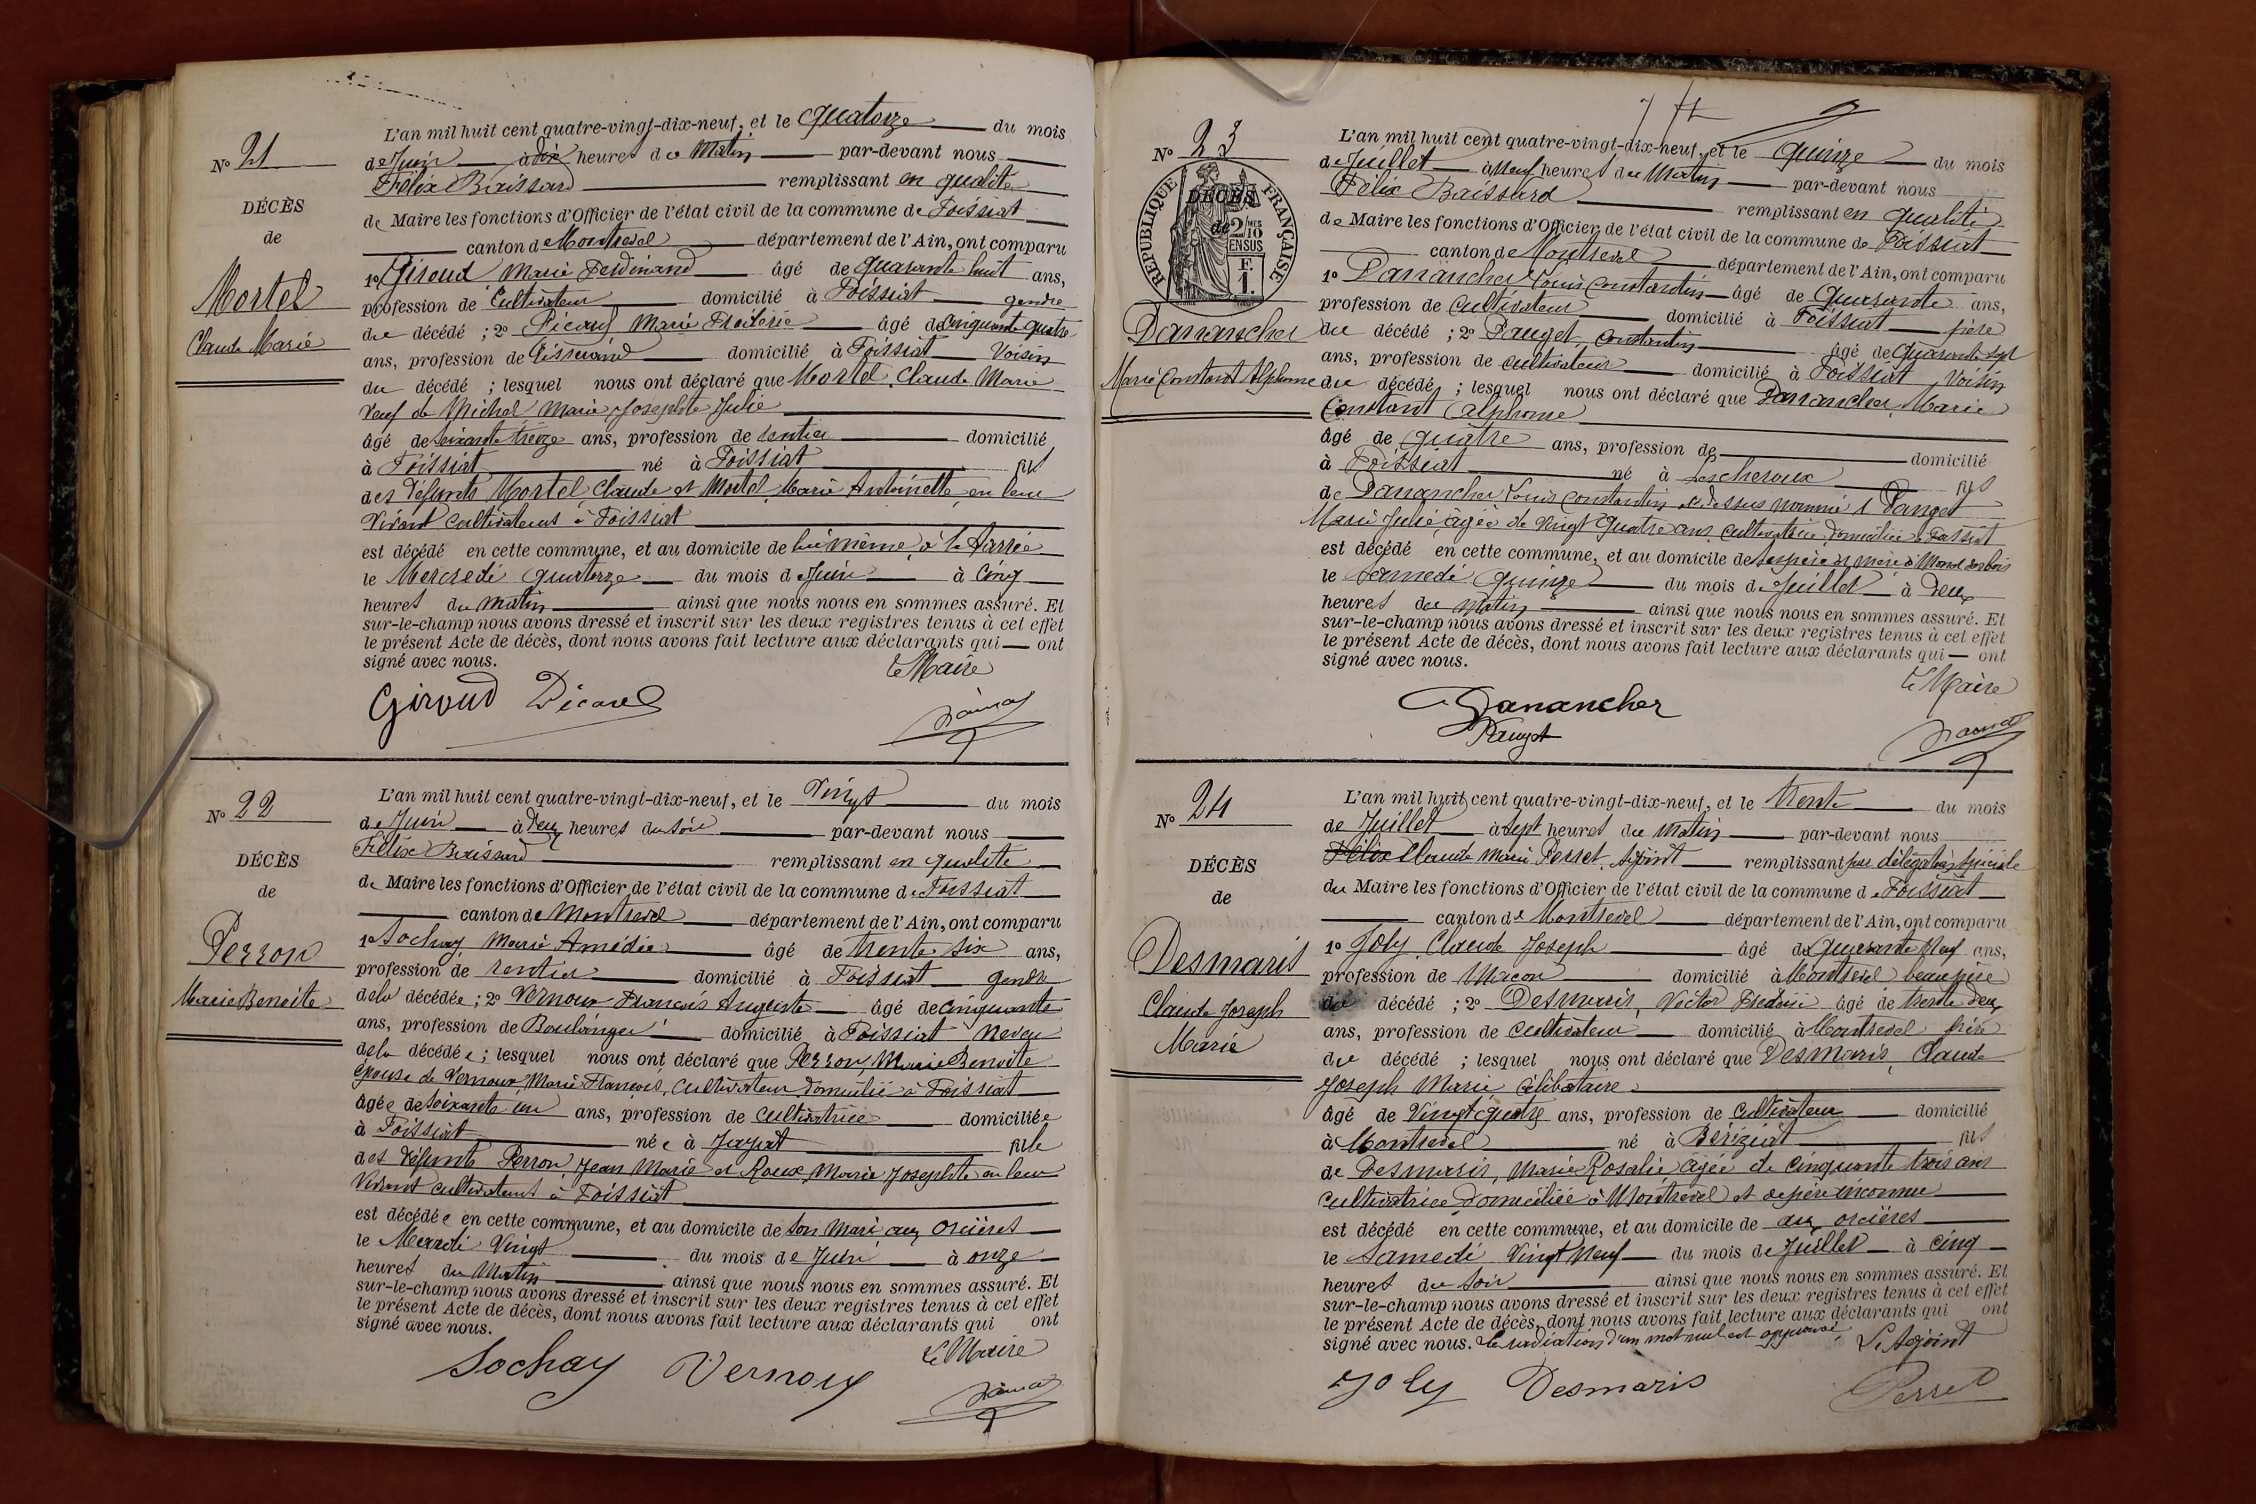 L'an mil huit cent quatre-vingt-dix-neuf, et le quatorze du mois
No 21
de Juin à dix heures du Matin par-devant nous
Félix remplissant en qualité
DÉCÈS
de Maire les fonctions d'Officier de l'état civil de la commune de Foissiat
de
canton de Montrevel département de l'Ain, ont comparu
Mortel
Claude Marie
1o Giroud Marie Ferdinand âgé de quarante huit ans,
profession de Cultivateur domicilié à Foissiat gendre
du décédé ; 2o Marie âgé de cinquante quatre
ans, profession de domicilié à Foissiat Voisin
du décédé ; lesquels nous ont déclaré que Mortel Claude Marie
veuf de Michel Marie Josephte Julie
âgé de soixante treize ans, profession de rentier domicilié
à Foissiat né à Foissiat fils
des défunts Mortel Claude et Mortel Marie Antoinette en leur
vivant cultivateurs à Foissiat
est décédé en cette commune, et au domicile de lui même à
le Mercredi quatorze du mois de Juin à Cinq
heures du matin ainsi que nous nous en sommes assuré. Et
sur-le-champ nous avons dressé et inscrit sur les deux registres tenus à cet effet
le présent Acte de décès, dont nous avons fait lecture aux déclarants qui ont
signé avec nous.
Le Maire
Giroud
L'an mil huit cent quatre-vingt-dix-neuf, et le Vingt du mois
No 22
de Juin à deux heures du soir par-devant nous
Félix remplissant en qualité
DÉCÈS
de Maire les fonctions d'Officier de l'état civil de la commune de Foissiat
de
canton de Montrevel département de l'Ain, ont comparu
Perron
Marie Benoite
1o Sochay Marie Amédée âgé de trente six ans,
profession de rentier domicilié à Foissiat gendre
de la décédée ; 2o Vernoux François Auguste âgé de cinquante
ans, profession de Boulanger domicilié à Foissiat neveu
de la décédée ; lesquel nous ont déclaré que Perron, Marie Benoite
épouse de Vernoux, Marie François, cultivateur domicilié à Foissiat
âgée de soixante un ans, profession de cultivatrice domiciliée
à Foissiat née à Jayat fille
des défunts Perron Jean Marie et Roux Marie Josephte en leur
vivant cultivateurs à Foissiat
est décédée en cette commune, et au domicile de son mari aux orcières
le Mardi Vingt du mois de Juin à onze
heures du Matin ainsi que nous nous en sommes assuré. Et
sur-le-champ nous avons dressé et inscrit sur les deux registres tenus à cet effet
le présent Acte de décès, dont nous avons fait lecture aux déclarants qui ont
signé avec nous.
Le Maire
Sochay Vernoux
L'an mil huit cent quatre-vingt-dix-neuf, et le quinze du mois
No 23
de Juillet à neuf heures du Matin par-devant nous
Félix remplissant en qualité
RÉPUBLIQUE FRANÇAISE
DÉCÈS
de
2/10 EN SUS
F. 1.
de Maire les fonctions d'Officier de l'état civil de la commune de Foissiat
canton de Montrevel département de l'Ain, ont comparu
Danancher
Marie Constant Alphonse
1o Danancher Louis Constantin âgé de quarante ans,
profession de cultivateur domicilié à Foissiat père
du décédé ; 2o Pauget, Constantin âgé de quarante sept
ans, profession de cultivateur domicilié à Foissiat Voisin
du décédé ; lesquel nous ont déclaré que Danancher Marie
Constant Alphonse
âgé de quatre ans, profession de domicilié
à Foissiat né à Lescheroux fils
de Danancher Louis Constantin, ci dessus nommé & Pauget
Marie Julie âgée de vingt quatre ans cultivatrice domiciliée à Foissiat
est décédé en cette commune, et au domicile de ses père et mère à
le samedi quinze du mois de Juillet à deux
heures du matin ainsi que nous nous en sommes assuré. Et
sur-le-champ nous avons dressé et inscrit sur les deux registres tenus à cet effet
le présent Acte de décès, dont nous avons fait lecture aux déclarants qui ont
signé avec nous.
Le Maire
Danancher
Pauget
L'an mil huit cent quatre-vingt-dix-neuf, et le trente du mois
No 24
de Juillet à sept heures du Matin par-devant nous
Félix Claude Marie Perret, Adjoint remplissant par délégation spéciale
DÉCÈS
du Maire les fonctions d'Officier de l'état civil de la commune de Foissiat
de
canton de Montrevel département de l'Ain, ont comparu
Desmaris
Claude Joseph
Marie
1o Joly Claude Joseph âgé de quarante neuf ans,
profession de Maçon domicilié à Montrevel beau père
du décédé ; 2o Desmaris, Victor Frédéric âgé de trente deux
ans, profession de cultivateur domicilié à Montrevel frère
du décédé ; lesquel nous ont déclaré que Desmaris, Claude
Joseph Marie célibataire
âgé de Vingt quatre ans, profession de cultivateur domicilié
à Montrevel né à Béréziat fils
de Desmaris, Marie Rosalie âgée de cinquante trois ans
cultivatrice domiciliée à Montrevel et de père inconnu
est décédé en cette commune, et au domicile de aux orcières
le Samedi Vingt Neuf du mois de Juillet à cinq
heures du soir ainsi que nous nous en sommes assuré. Et
sur-le-champ nous avons dressé et inscrit sur les deux registres tenus à cet effet
le présent Acte de décès, dont nous avons fait lecture aux déclarants qui ont
signé avec nous. La radiation d'un mot nul est approuvée
L'Adjoint
Joly Desmaris Perret